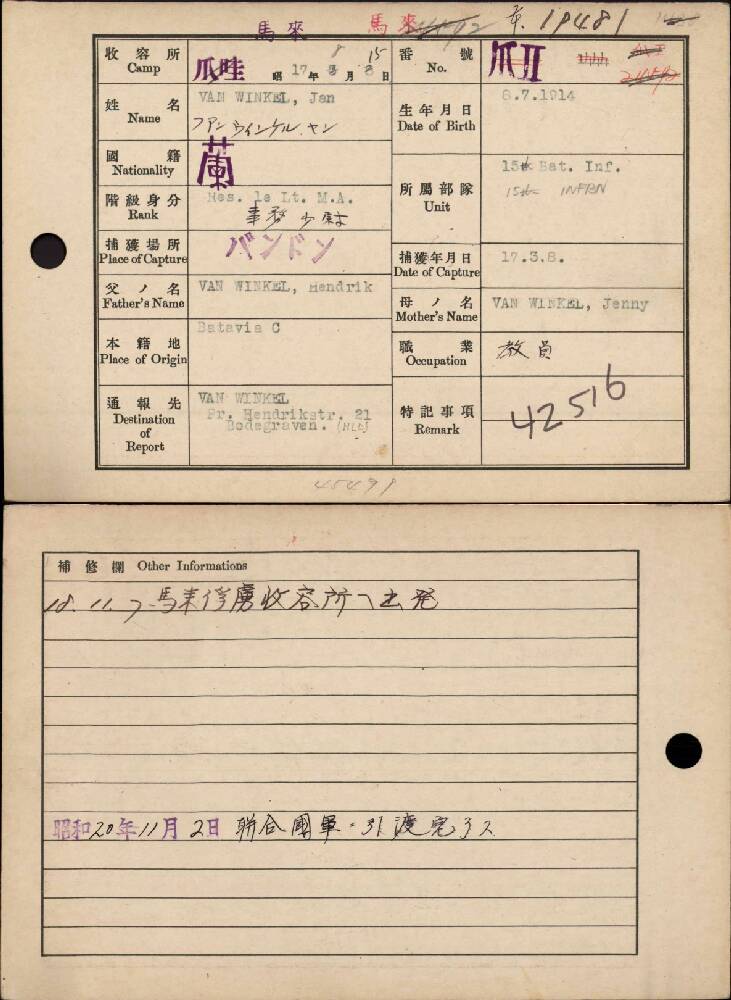 馬來 馬來 19481
收容所 Camp 爪哇 昭 17年 8月 15日 番號 No. 爪Ⅱ
姓名 Name VAN WINKEL, Jan
ファン ウィンケル. ヤン
生年月日 Date of Birth 8.7.1914
國籍 Nationality 蘭
階級身分 Rank Res. 1e Lt. M.A.
所屬部隊 Unit 15th Bat. Inf.
15th INFBN
捕獲場所 Place of Capture バンドン
捕獲年月日 Date of Capture 17.3.8.
父ノ名 Father's Name VAN WINKEL, Hendrik
母ノ名 Mother's Name VAN WINKEL, Jenny
本籍地 Place of Origin Batavia C
職業 Occupation 教員
通報先 Destination of Report VAN WINKEL
Pr. Hendrikstr. 21
Bodegraven.
特記事項 Remark 42516
45491
補修欄 Other Informations
18.11.7 馬来俘虜收容所へ出発
昭和20年11月2日 聯合國軍ニ引渡完了ス